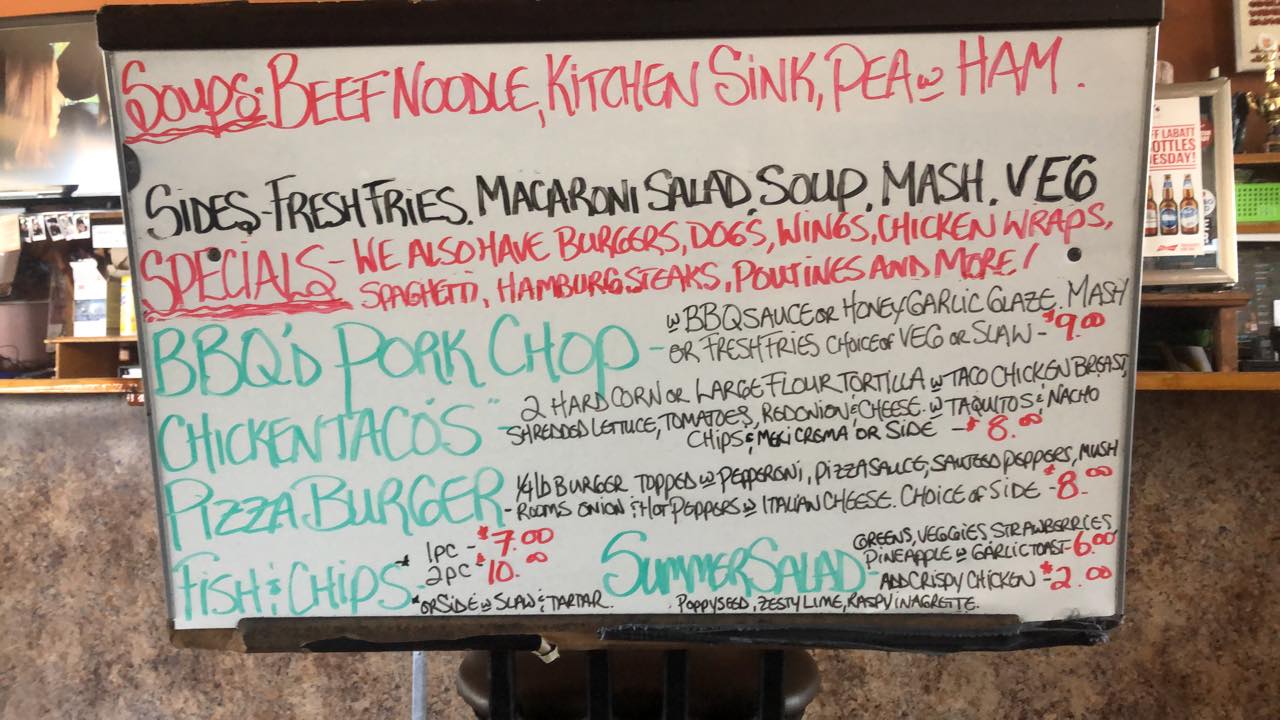 SOUPS: BEEF NOODLE, KITCHEN SINK, PEA w HAM.
SIDES - FRESH FRIES. MACARONI SALAD. SOUP. MASH. VEG
SPECIALS - WE ALSO HAVE BURGERS, DOGS, WINGS, CHICKEN WRAPS,
SPAGHETTI, HAMBURG STEAKS, POUTINES AND MORE!
BBQ'D PORK CHOP - w BBQ SAUCE OR HONEY GARLIC GLAZE. MASH
OR FRESH FRIES CHOICE OF VEG OR SLAW - $9.00
CHICKEN TACO'S - 2 HARD CORN OR LARGE FLOUR TORTILLA w TACO CHICKEN BREAST,
SHREDDED LETTUCE, TOMATOES, RED ONION & CHEESE. w TAQUITOS & NACHO
CHIPS & MEXI CREMA OR SIDE - $8.00
PIZZA BURGER - 1/4 lb BURGER TOPPED w PEPPERONI, PIZZA SAUCE, SAUTEED PEPPERS, MUSH
-ROOMS ONION & HOT PEPPERS w ITALIAN CHEESE. CHOICE OF SIDE - $8.00
FISH & CHIPS - * 1PC - $7.00
2PC - $10.00
*OR SIDE w SLAW & TARTAR.
SUMMER SALAD - GREENS, VEGGIES STRAWBERRIES,
PINEAPPLE w GARLIC TOAST - 6.00
ADD CRISPY CHICKEN - $2.00
POPPYSEED, ZESTY LIME, RASP VINAGRETTE.
FF LABATT
OTTLES
ESDAY!